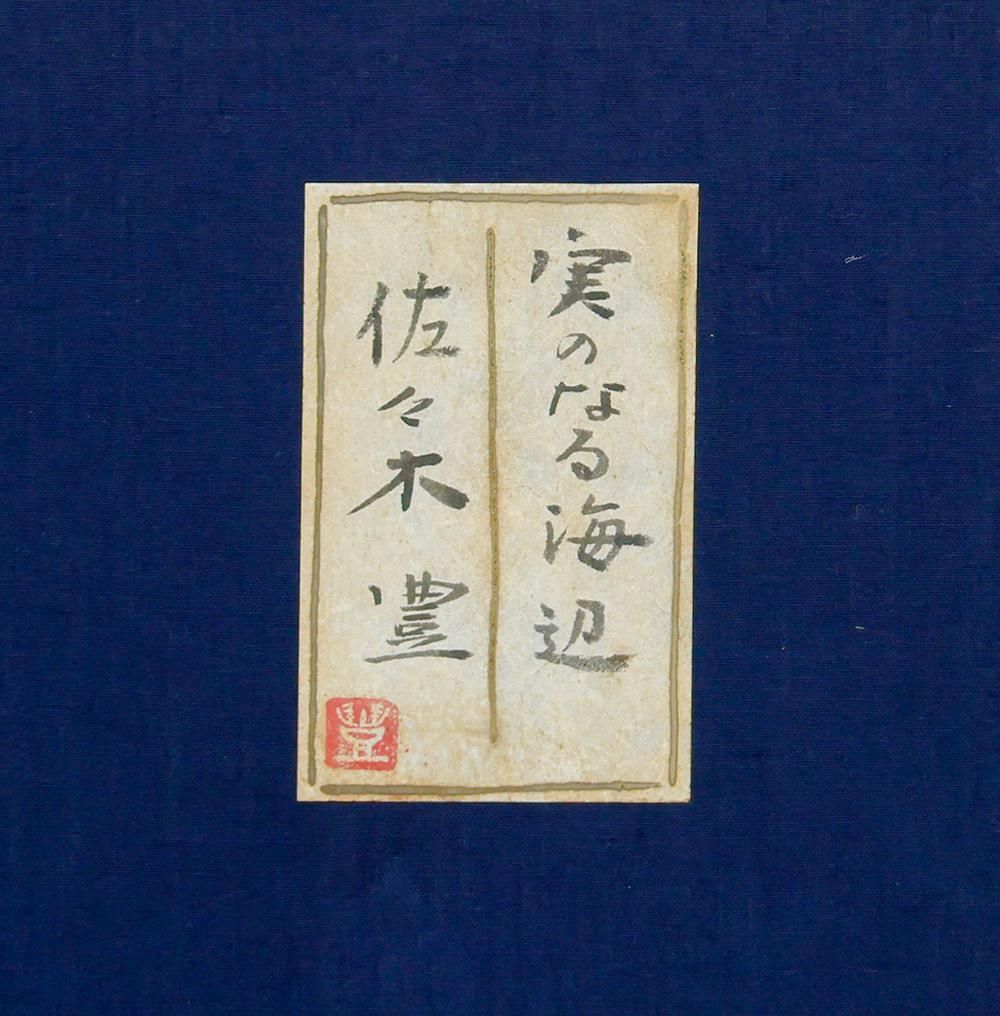 実のなる海辺
佐々木豊
豊